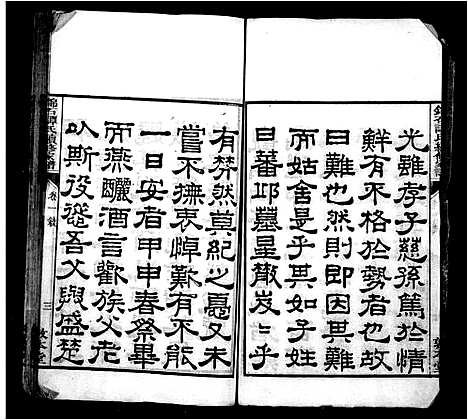 光雖孝子慈孫篤於情
鮮有不格於勢者也故
曰難也然則即因其難
而姑舍是乎其如子姓
日蕃邱墓星散岌岌乎
有棼然莫紀之憂又未
嘗不撫衷悼難有不能
一日安者甲申春祭畢
而燕釃酒言歡族父老
以斯役遜吾父與盛楚
卷一敘
三